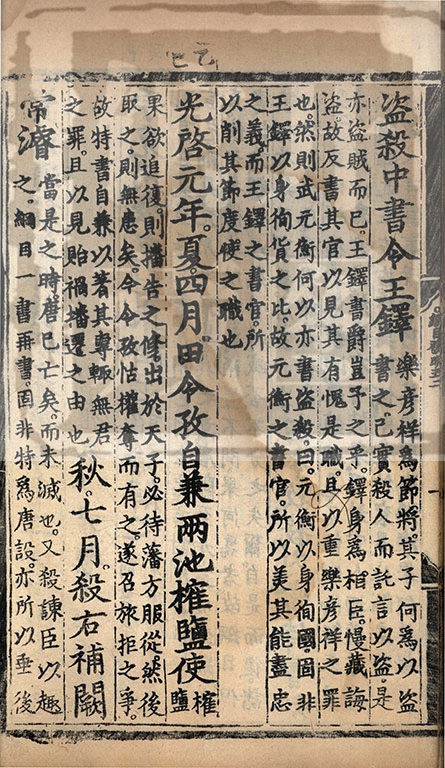 乙巳
盜殺中書令王鐸
樂彦祥爲節將其子何爲以盜
書之己實殺人而託言以盜是
亦盜賊而已王鐸書爵豈予之乎鐸身爲相臣慢藏誨
盜故反書其官以見其有愧是職且以重樂彦祥之罪
也然則武元衡何以亦書盜殺曰元衡以身徇國固非
王鐸以身徇貨之比故元衡之書官所以美其能盡忠
之義而王鐸之書官所
以削其節度使之職也
光啓元年夏四月田令孜自兼兩池榷鹽使
榷
鹽
果欲追復則播告之修出於天子必待藩方服從然後
取之則無患矣今令孜怙權奪而有之遂召旅拒之爭
故特書自兼以著其專輙無君
之罪且以見貽禍播遷之由也
秋七月殺右補闕
常濬
當是之時唐已亡矣而未滅也又殺諫臣以趣
之綱目一書再書固非特爲唐設亦所以垂後